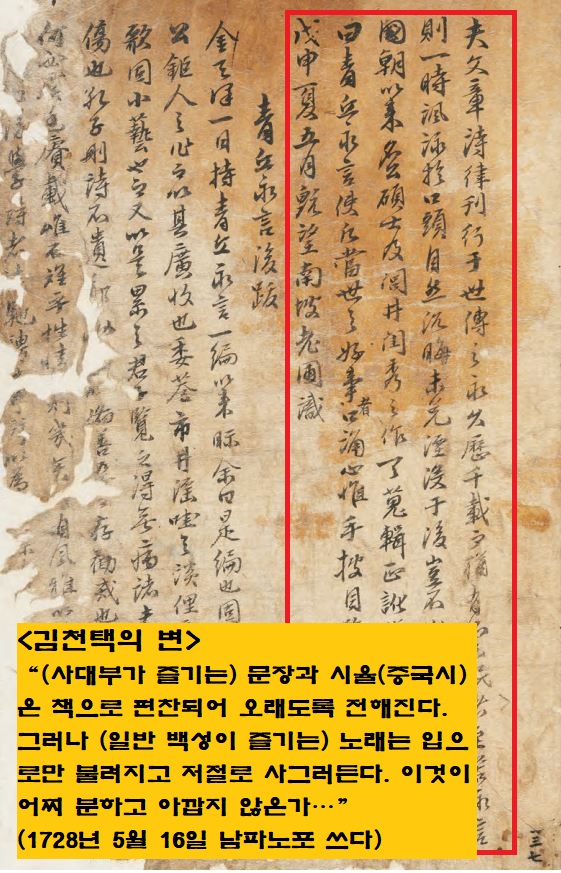 夫文章詩律刊行于世傳之永久歷千載而猶有所未泯者至若永言
則一時諷詠於口頭自然沉晦未免湮沒于後豈不
國朝以來名公碩士及閭井閨秀之作一一蒐輯正訛
曰靑丘永言使凡當世之好事者口誦心惟手披目
戊申夏五月旣望南坡老圃識
靑丘永言後跋
金天澤一日持靑丘永言一編以來眎余曰是編也固
公鉅人之作而以其廣收也委巷市井淫哇之談俚
歌固小藝也而又以是累之君子覽之得無病諸夫
傷也孔子刪詩不遺鄭衛 備善惡 存勸戒也
何必虞廷賡載惟不離乎性情則幾矣 自風雅以
一三七
<김천택의 변>
“(사대부가 즐기는) 문장과 시율(중국시)
은 책으로 편찬되어 오래도록 전해진다.
그러나 (일반 백성이 즐기는) 노래는 입으
로만 불려지고 저절로 사그러든다. 이것이
어찌 분하고 아깝지 않은가…”
(1728년 5월 16일 남파노포 쓰다)